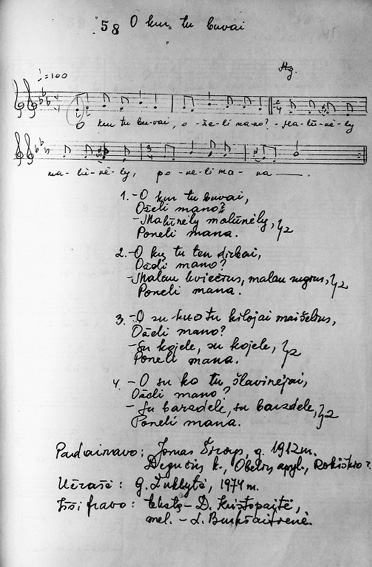 58 O kur tu buvai
♩=100
O kur tu bu-vai, o-že-li mano? - Ma-lū-nė-ly
ma-lū-nė-ly, po-ne-li ma-na
1. - O kur tu buvai,
Ožėli mano?
- Malūnėly malūnėly,
Poneli mana.
2. - O ką tu ten dirbai,
Ožėli mano?
- Malau kviečius, malau rugius,
Poneli mana.
3. - O su kuo tu kilojai maišelius,
Ožėli mano?
- Su kojele, su kojele,
Poneli mana.
4. - O su ko tu šlavinėjai,
Ožėli mano?
- Su barzdele, su barzdele,
Poneli mana.
Padainavo: Jonas g. 1912 m.
k., Obelių apyl., Rokiškio r.
Užrašė: G. 1974 m.
Iššifravo: tekstą - D. Kristopaitė,
mel. - L. Burkšaitienė.